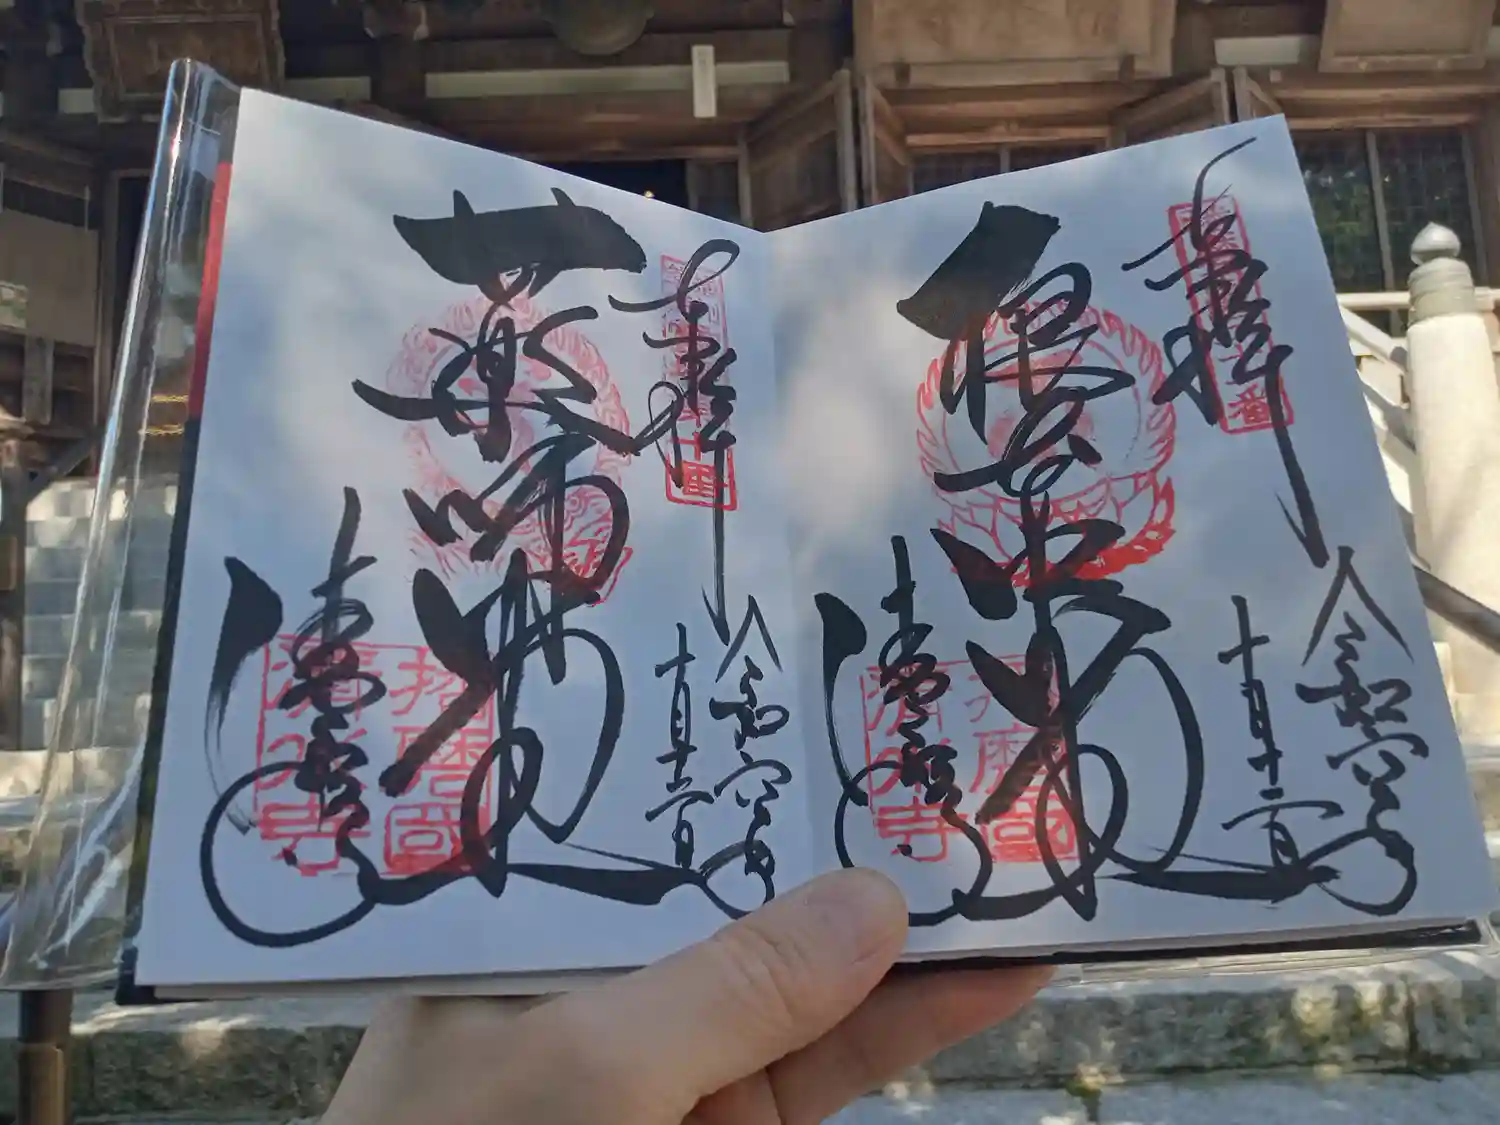 奉拝
令和六年
十月十二日
根本中堂
清水寺
播磨国
清水寺
奉拝
令和六年
十月十二日
薬師堂
清水寺
播磨国
清水寺